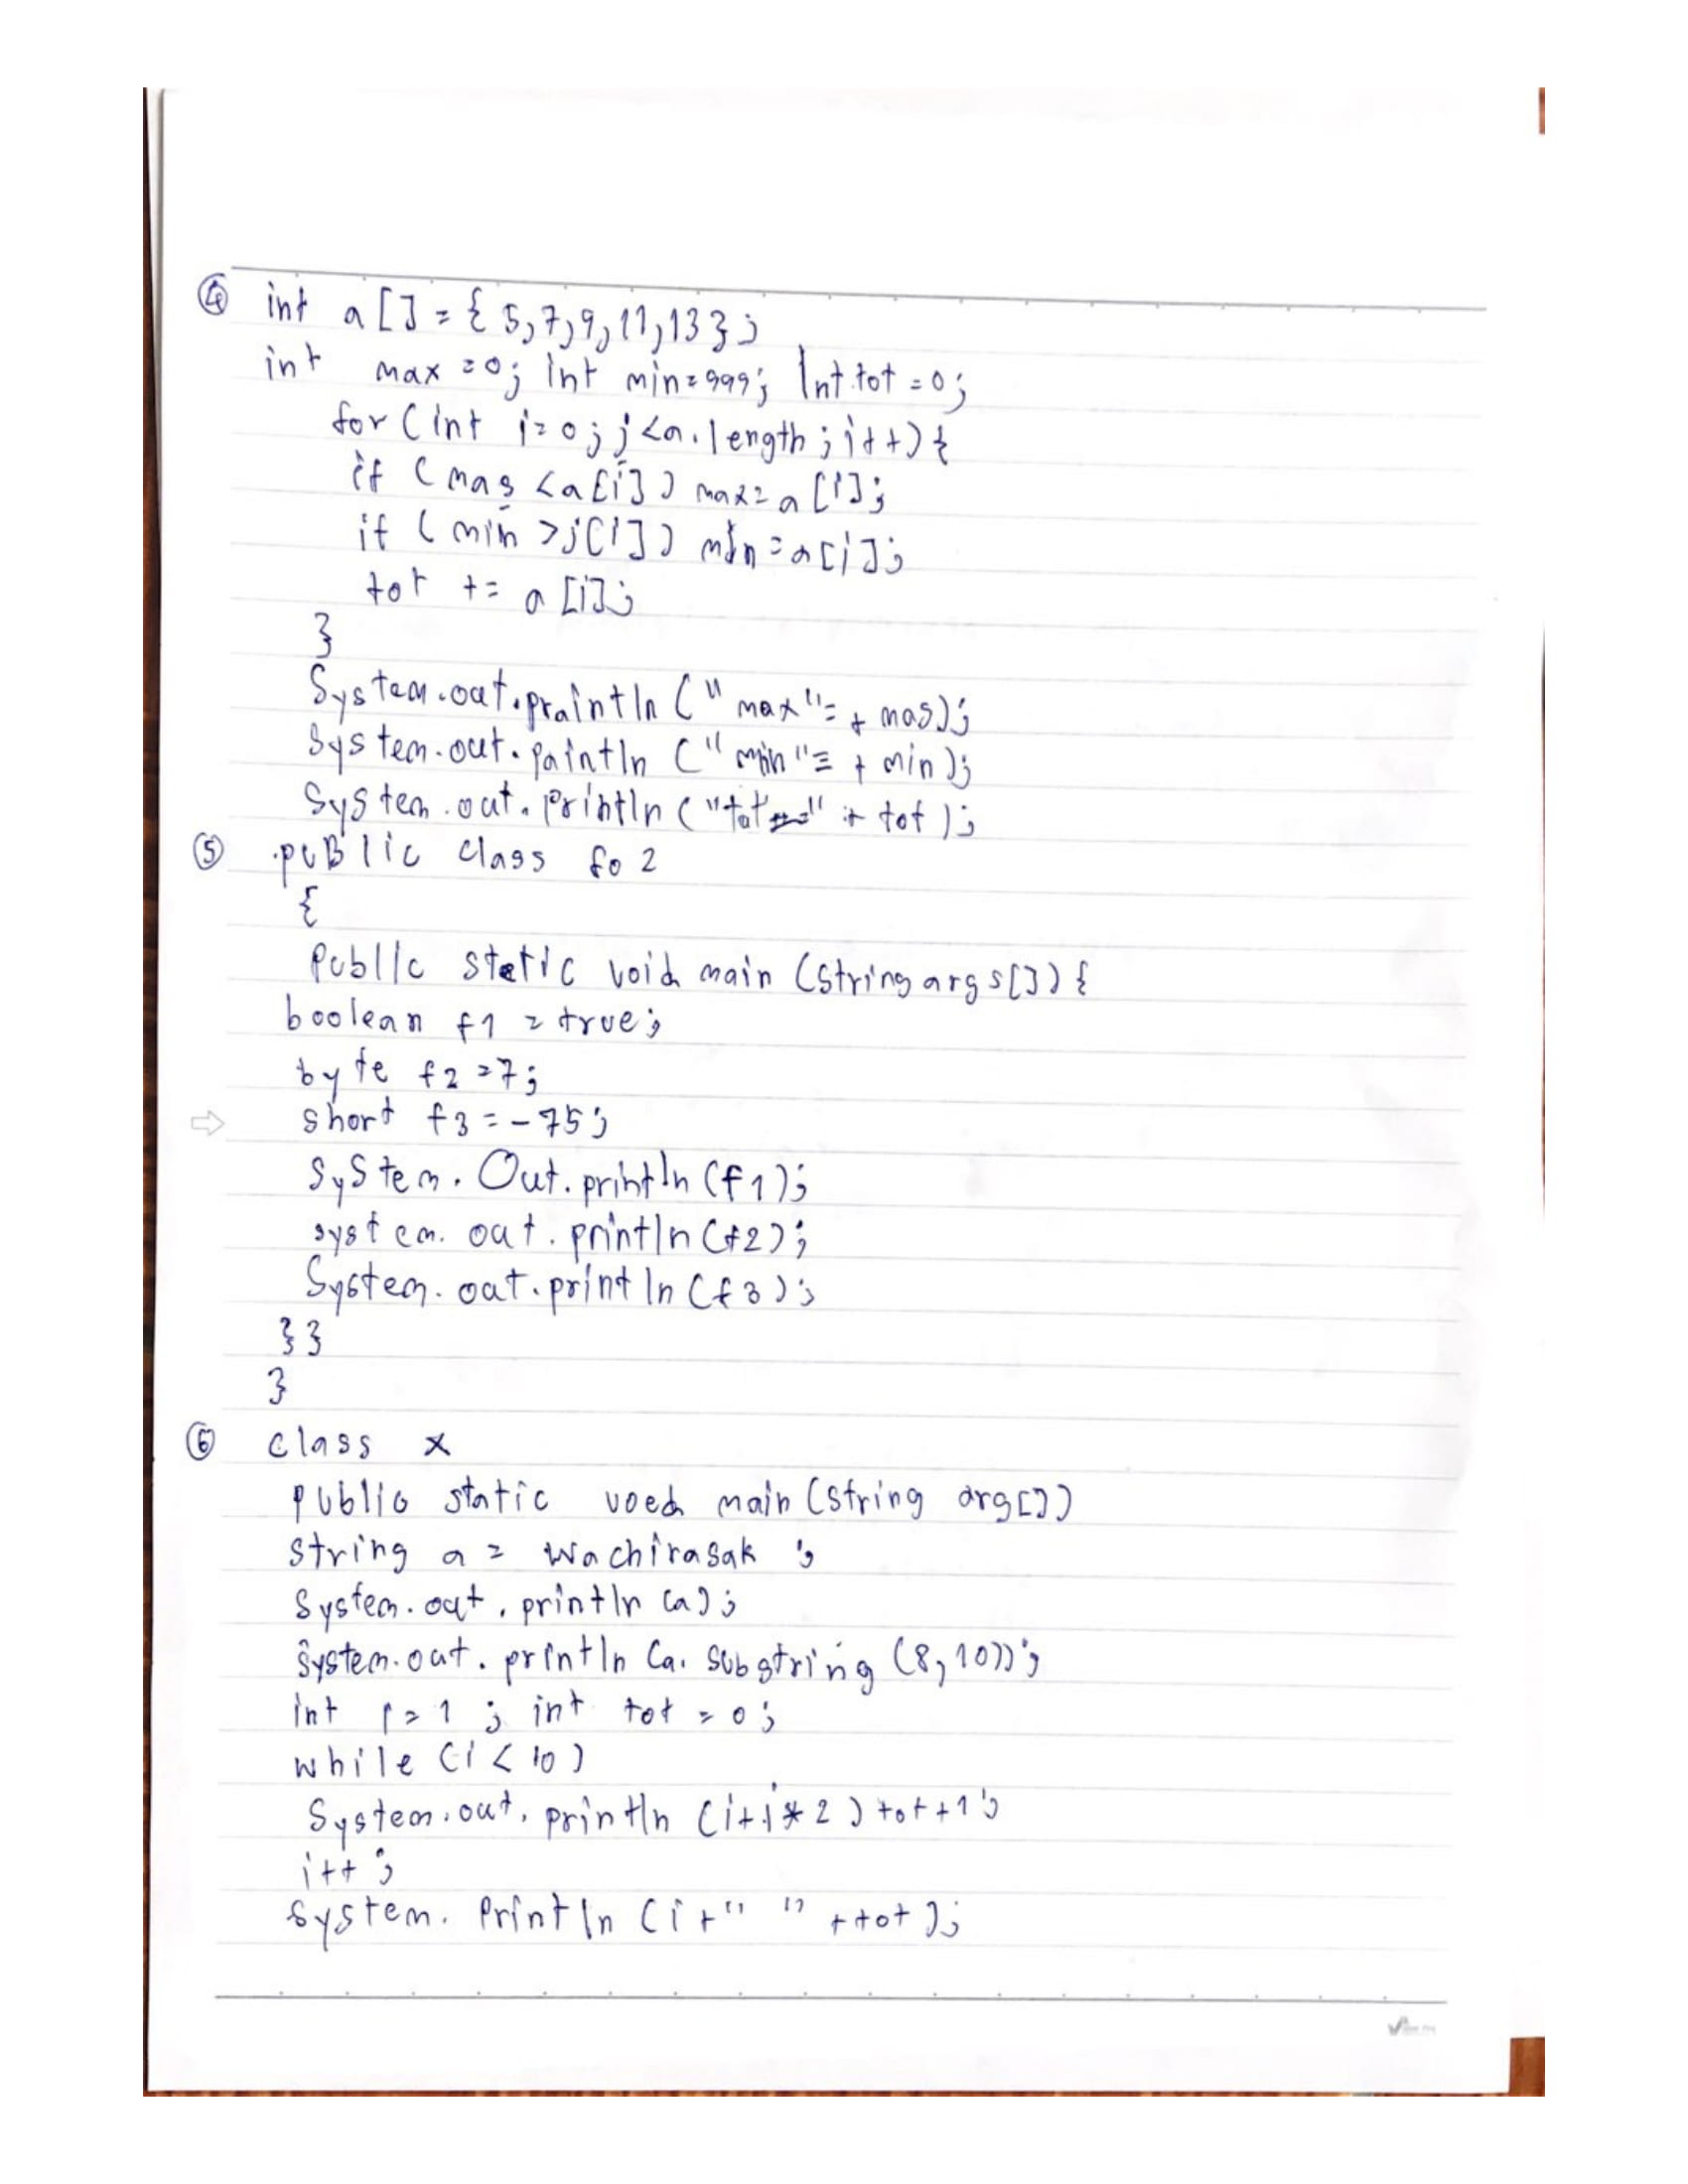 ④ int a[] = { 5,7,9,11,13 };
int max =0; int min=999; Int tot =0;
for (int i=0; j<a.length; i++){
if (mas <a[i]) max=a[i];
if (min >j[i]) min=a[i];
tot += a[i];
}
System.out.praintln ("max"= + mas);
System.out.paintln ("min"= + min);
System.out.println ("tot=" + tot);
⑤ .puBlic class fo2
{
Public static void main (String args[]) {
boolean f1 = true;
byte f2 =7;
⇨ short f3 = -75;
System. Out. println (f1);
system. out. println (f2);
System. out. println (f3);
}}
}
⑥ class x
public static voed main (string arg[])
string a = wachirasak ;
System.out. println (a);
System.out. println (a. substring (8,10));
int i=1 ; int tot = 0;
while (i < 10)
System.out. println (i+i*2) tot+1;
i++ ;
System. Println (i+" " +tot);